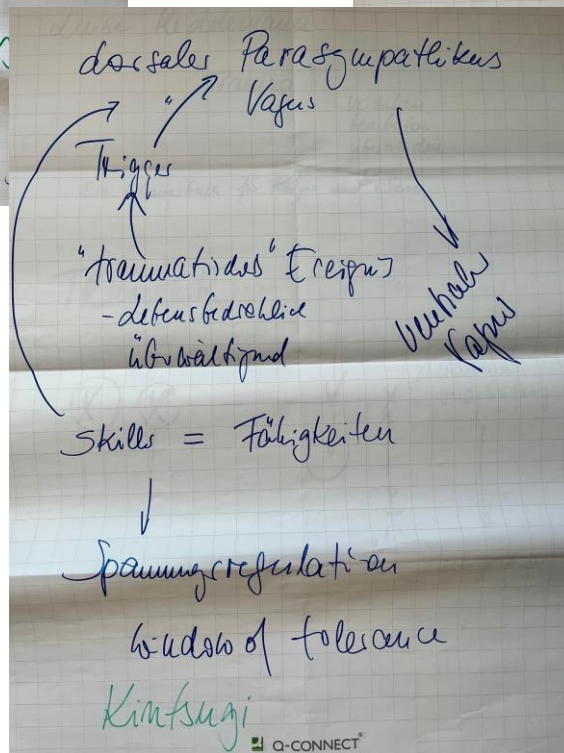 dorsaler Parasympathikus
" Vagus
Trigger
"traumatisches" Ereignis
- lebensbedrohlich
überwältigend
ventraler
Vagus
Skills = Fähigkeiten
Spannungsregulation
window of tolerance
Kintsugi
Q-CONNECT®